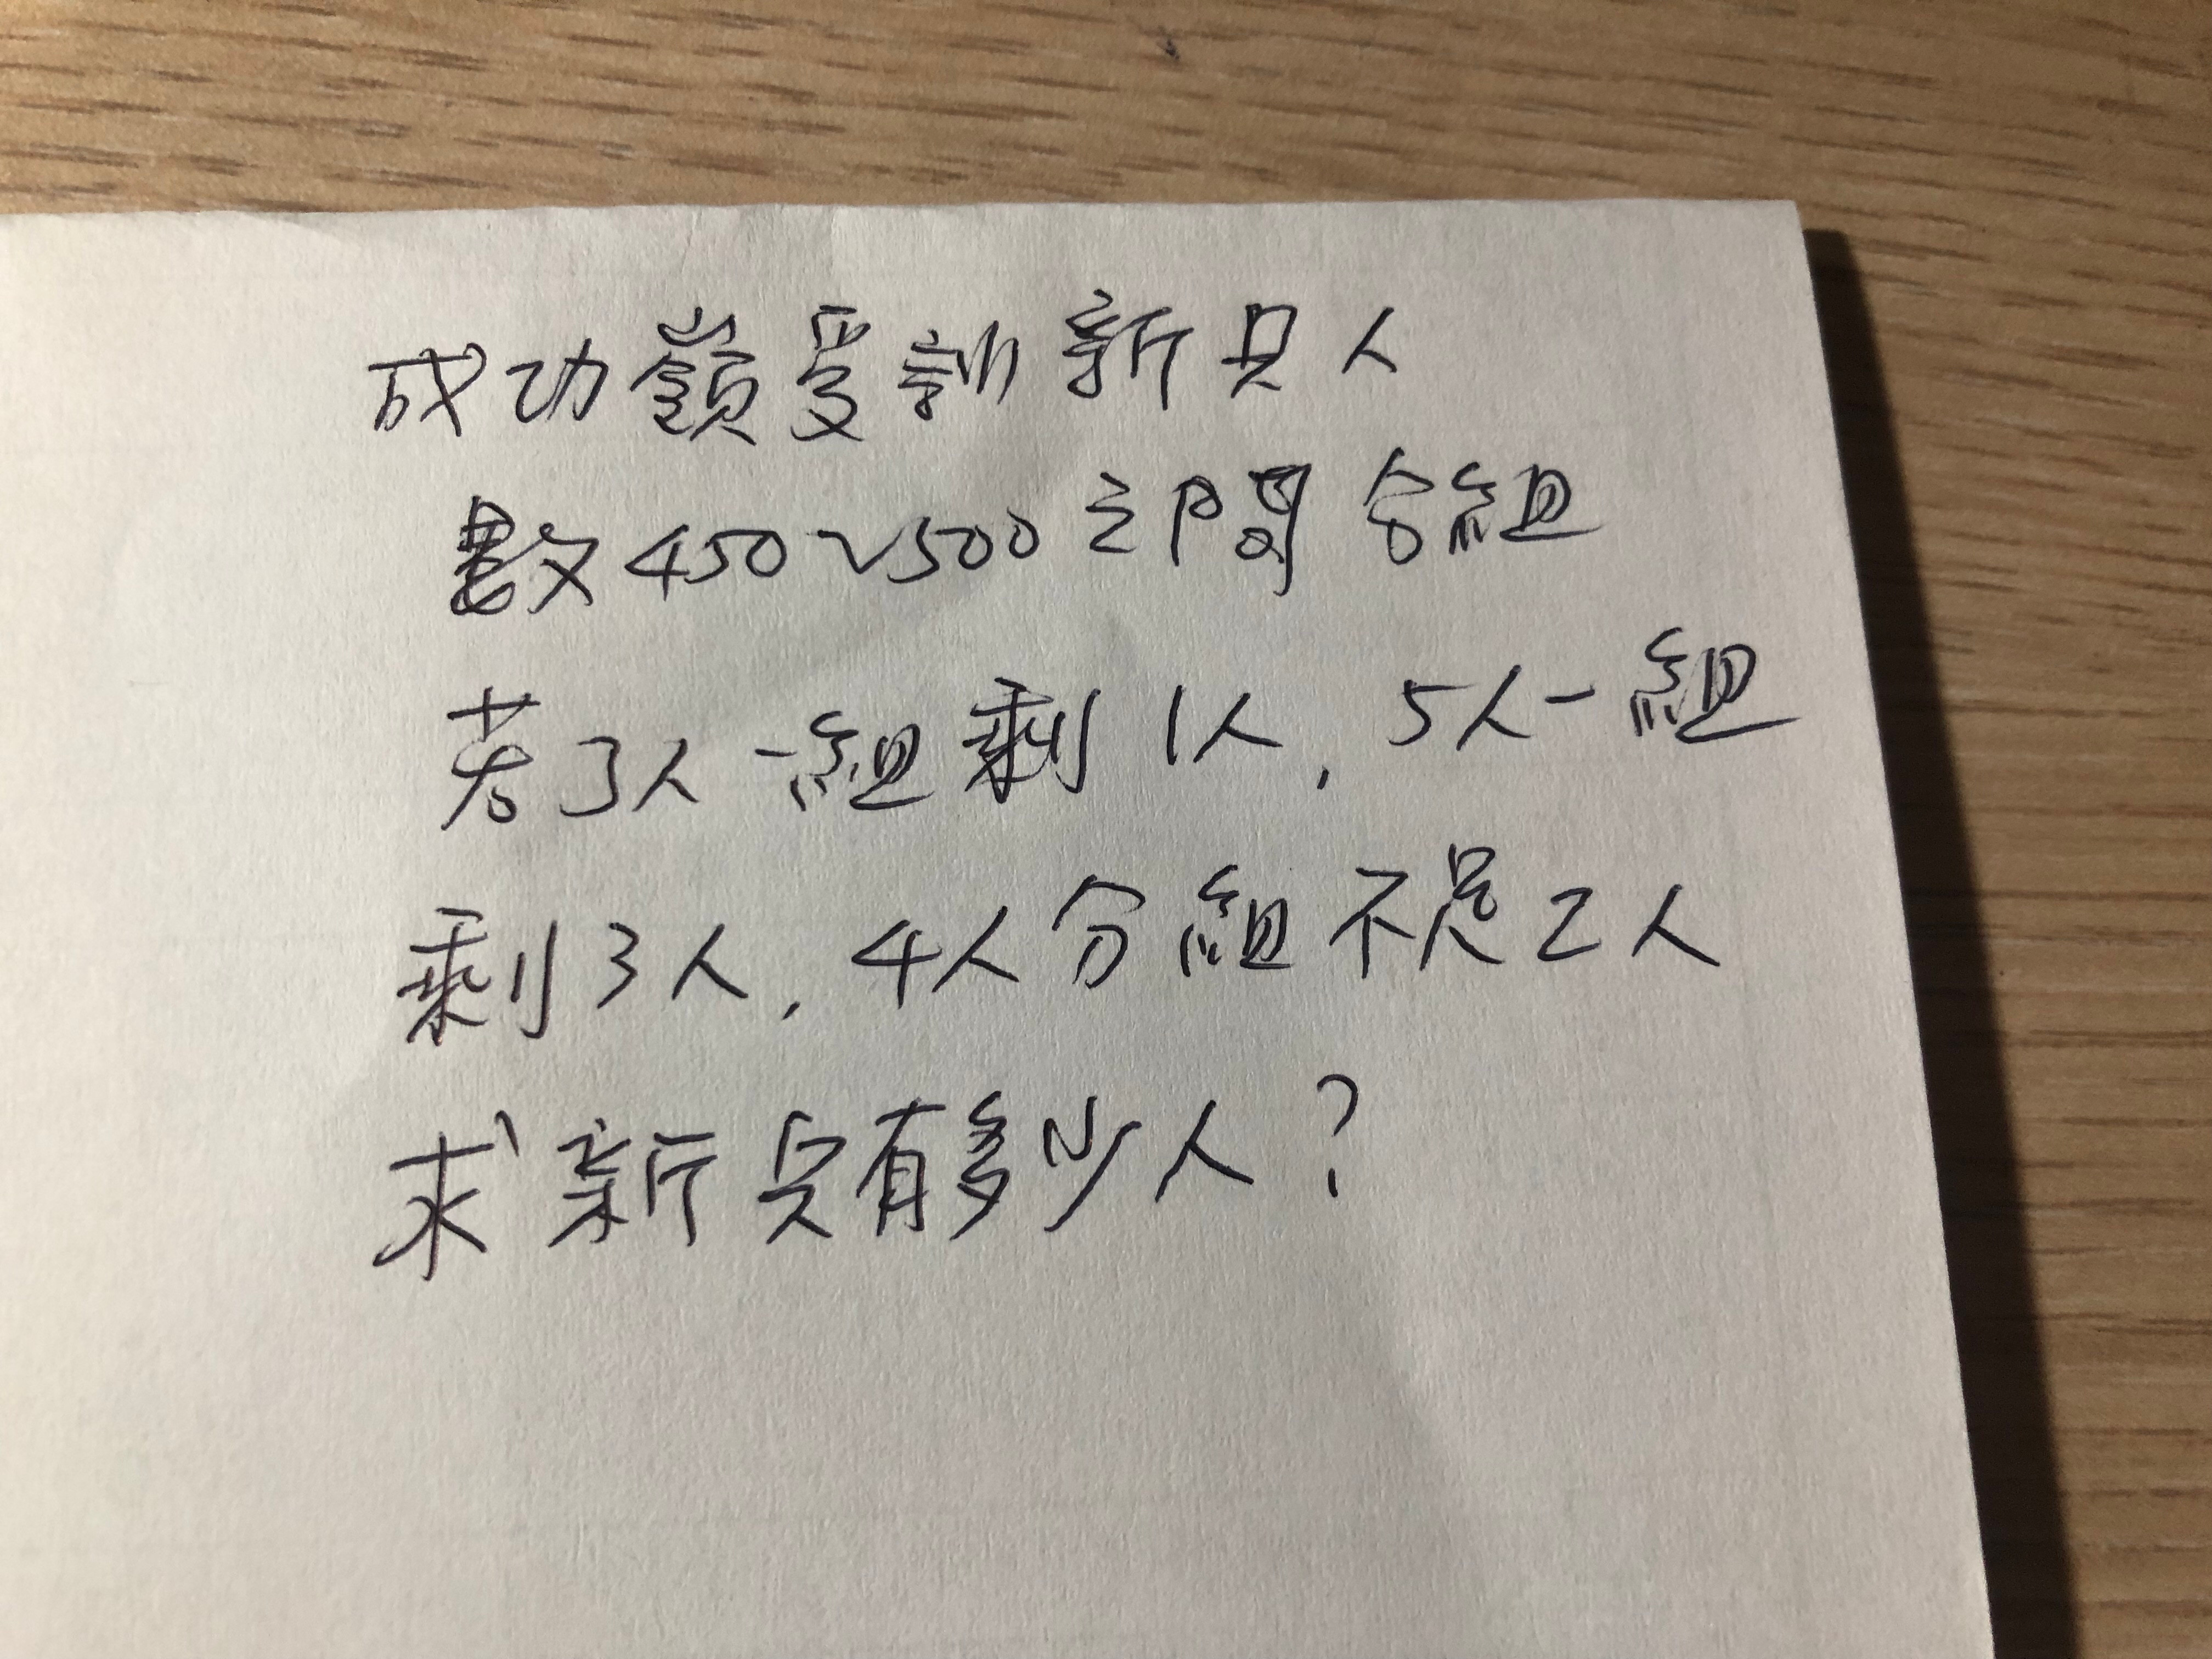 成功嶺受訓新兵人
數450~500之間 分組
若3人一組剩1人, 5人一組
剩3人, 4人分組不足2人
求新兵有多少人?